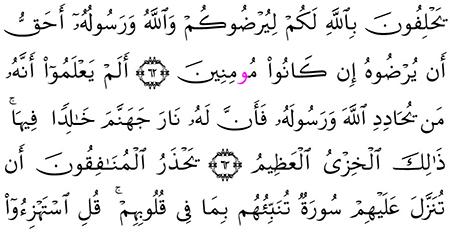 يَحْلِفُونَ بِاللَّهِ لَكُمْ لِيُرْضُوكُمْ وَاللَّهُ وَرَسُولُهُۥٓ أَحَقُّ
أَن يُرْضُوهُ إِن كَانُوا۟ مُومِنِينَ ۝٦٢ أَلَمْ يَعْلَمُوٓا۟ أَنَّهُۥ
مَن يُحَادِدِ ٱللَّهَ وَرَسُولَهُۥ فَأَنَّ لَهُۥ نَارَ جَهَنَّمَ خَـٰلِدًا فِيهَا ۚ
ذَٰلِكَ ٱلْخِزْىُ ٱلْعَظِيمُ ۝٦٣ يَحْذَرُ ٱلْمُنَـٰفِقُونَ أَن
تُنَزَّلَ عَلَيْهِمْ سُورَةٌ تُنَبِّئُهُم بِمَا فِى قُلُوبِهِمْ ۚ قُلِ ٱسْتَهْزِءُوٓا۟